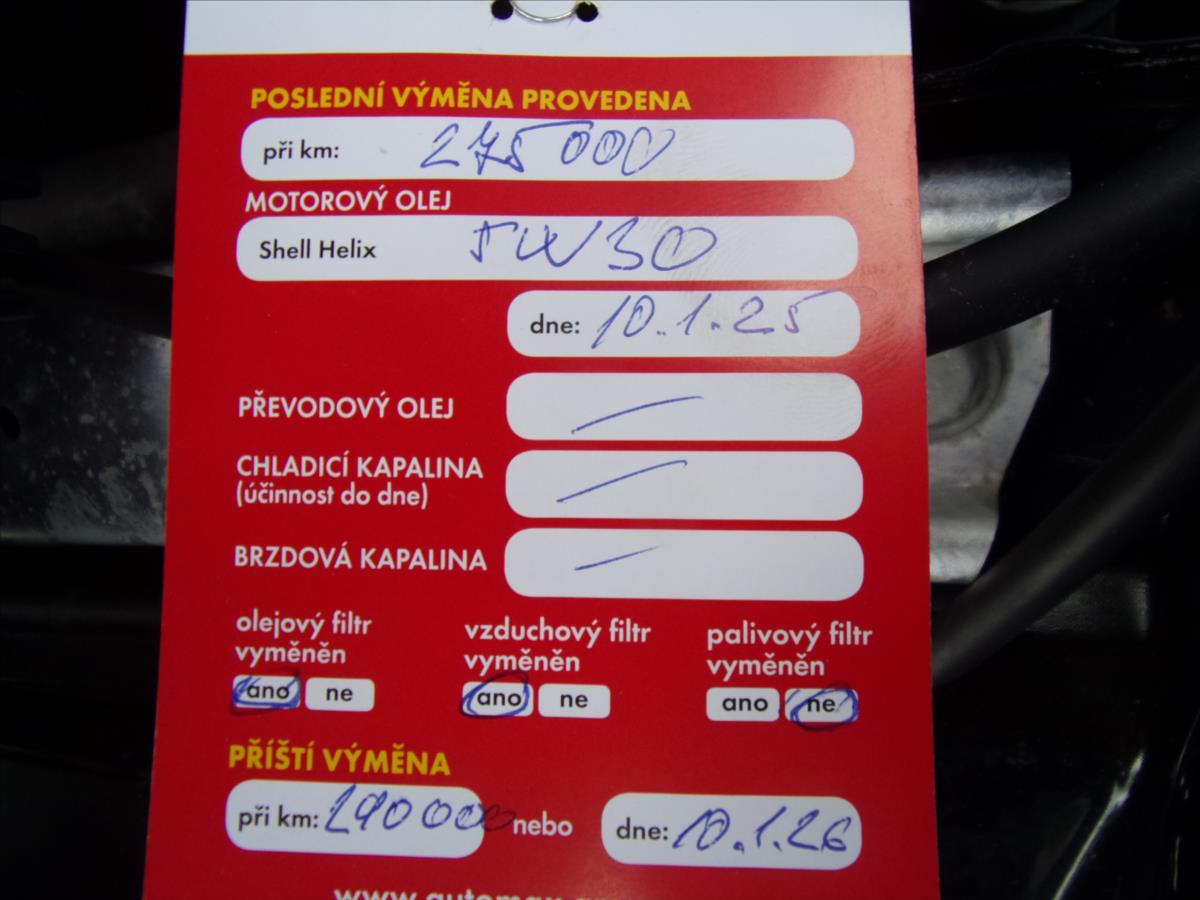 POSLEDNÍ VÝMĚNA PROVEDENA
při km: 275 000
MOTOROVÝ OLEJ
Shell Helix 5W30
dne: 10.1.25
PŘEVODOVÝ OLEJ
CHLADICÍ KAPALINA
(účinnost do dne)
BRZDOVÁ KAPALINA
olejový filtr vyměněn
ano ne
vzduchový filtr vyměněn
ano ne
palivový filtr vyměněn
ano ne
PŘÍŠTÍ VÝMĚNA
při km: 290 000 nebo dne: 10.1.26